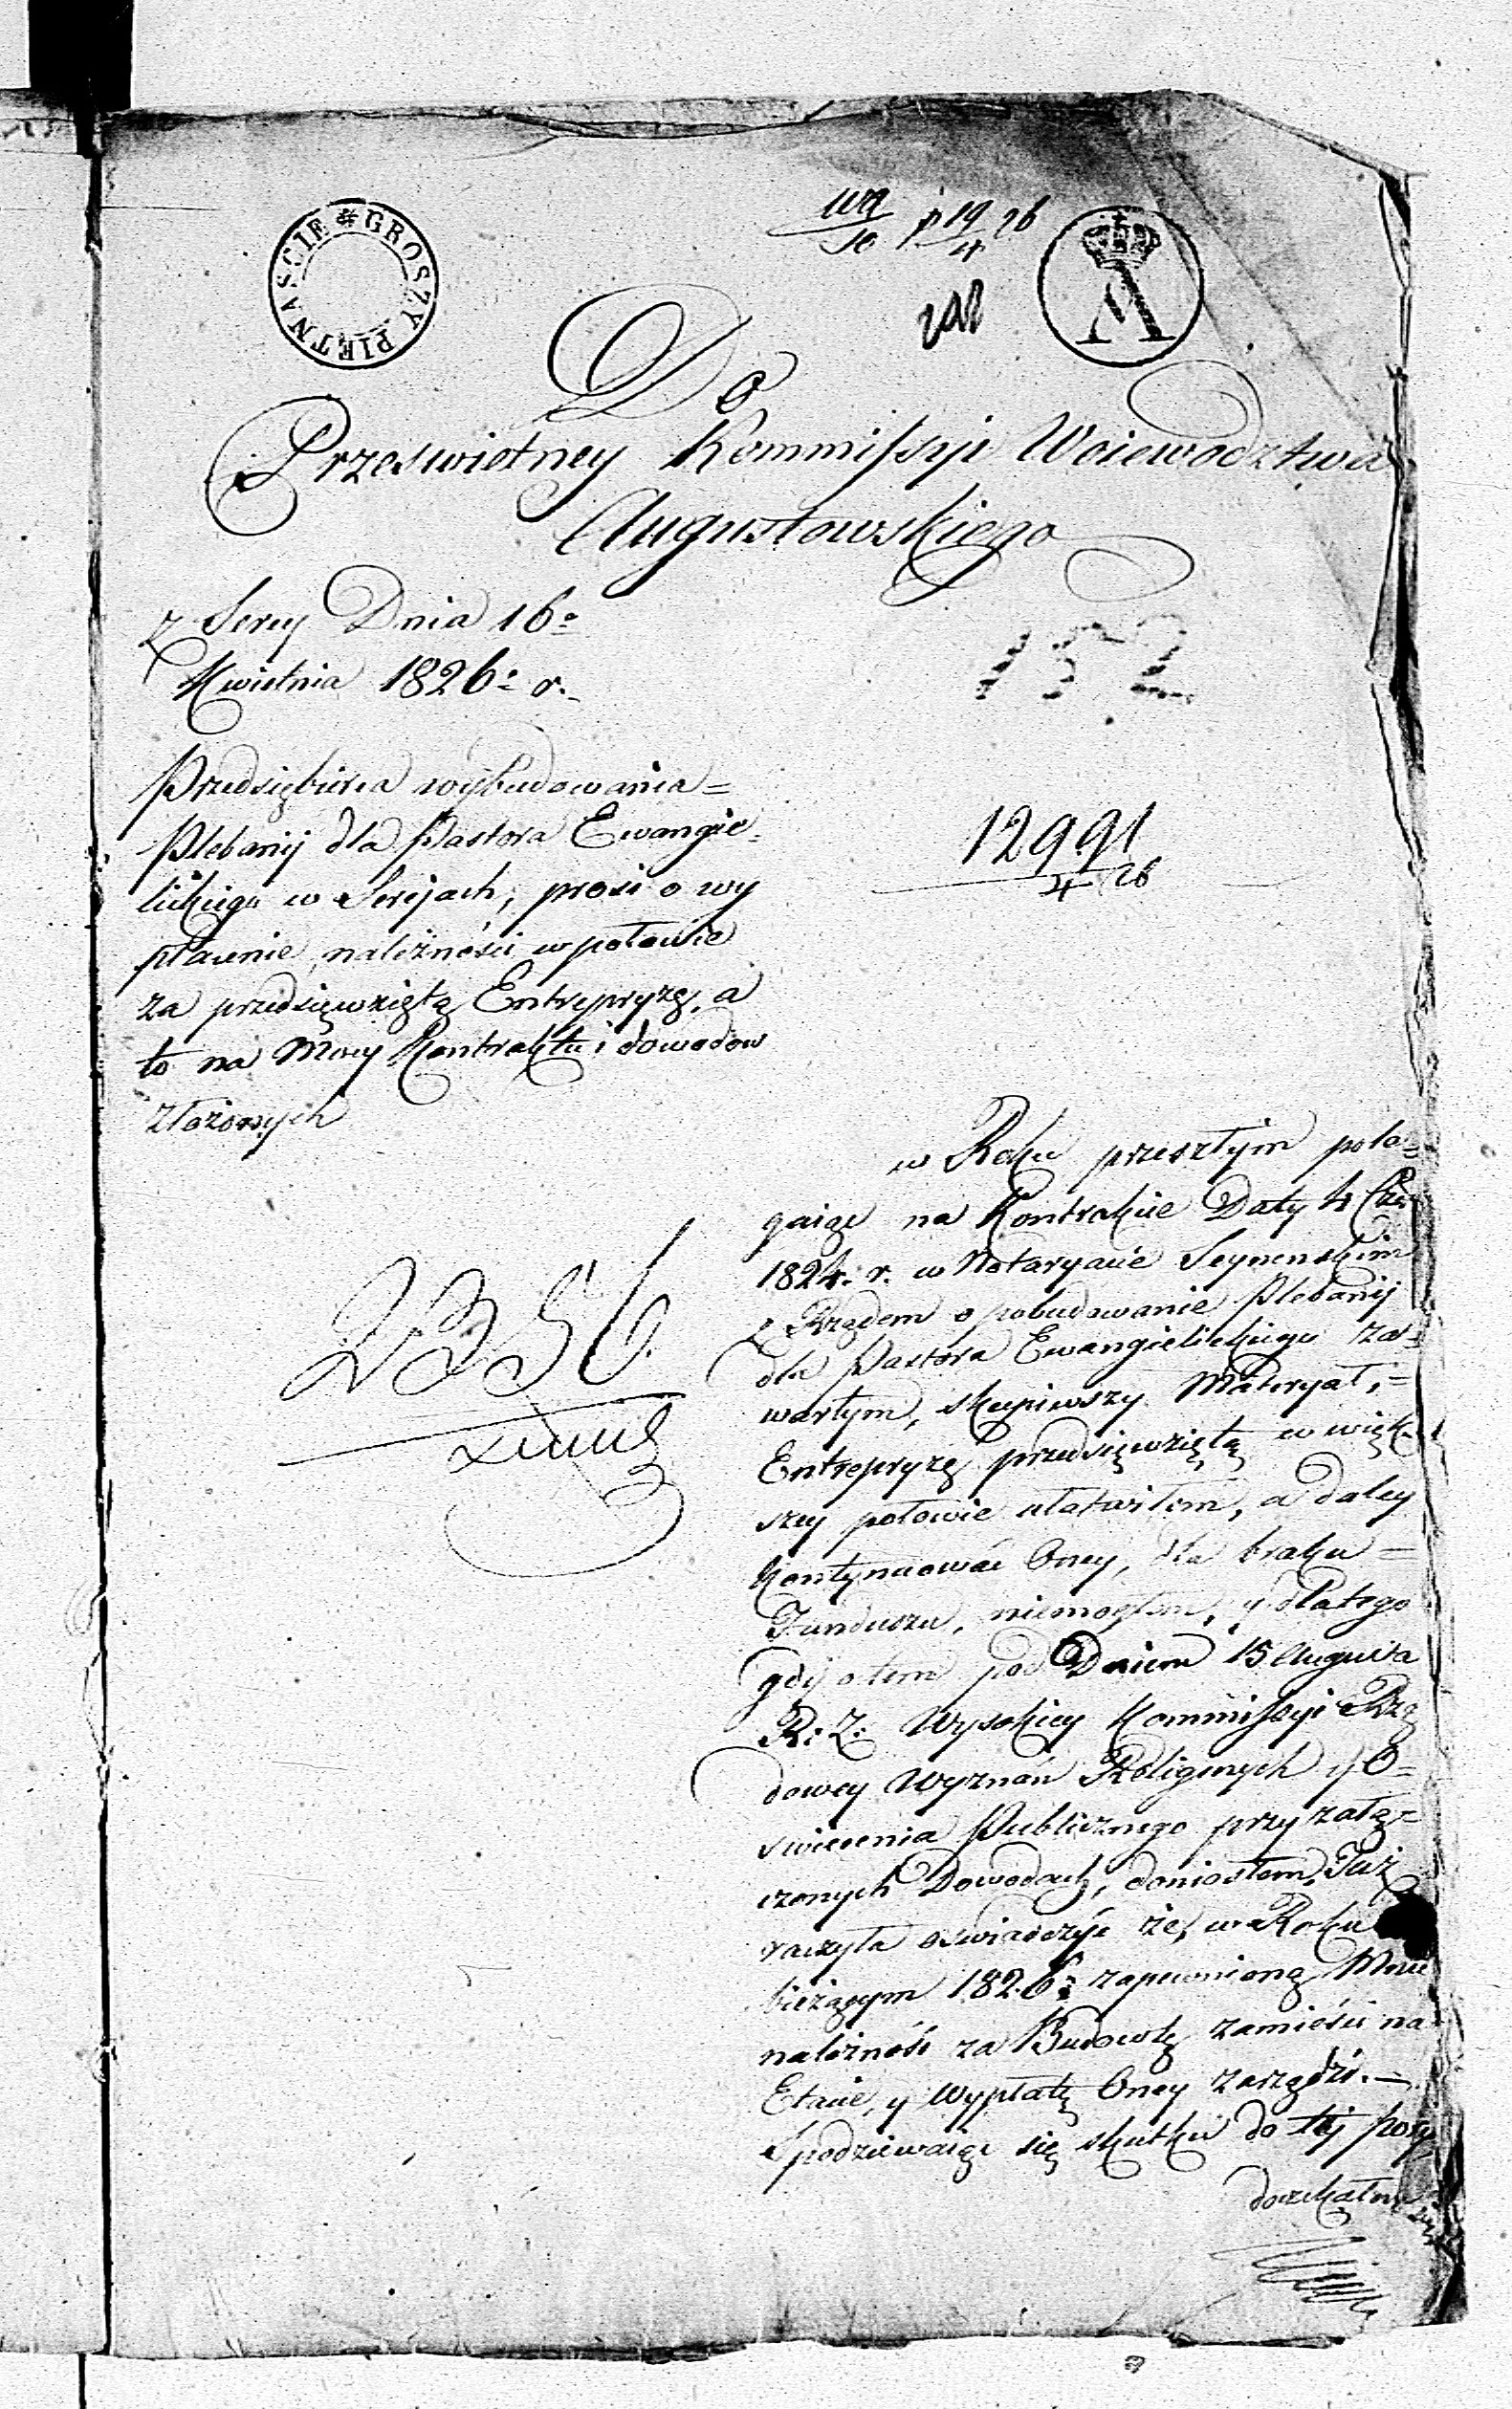 GROSZY PIĘTNAŚCIE
p 19/4 26
A
Do
Prześwietney Kommissyi Woiewodztwa
Augustowskiego
z Serey Dnia 16º
Kwietnia 1826º r.
152
Przedsiębierca wybudowania=
Plebanij dla Pastora Ewangie-
lickiego w Serejach, prosi o wy
płacenie należności w połowie
za przedsięwziętą Entrepryzę, a
to na Mocy Kontraktu i dowodow
złożonych
12991
4 26
w Roku przeszłym pola=
gaiąc na Kontrakcie Daty 4
1824. r. w Notaryacie Seynenskim
z Rządem o pobudowanie Plebanij
dla Pastora Ewangielickiego za=
wartym, skupiwszy Materyał,=
Entrepryzę przedsięwziętą w więk
szey połowie ułatwiłem, a daley
kontynuować Oney, dla braku=
Funduszu, niemogłem, y dlatego
gdy o tem pod Dniem 15 Augusta
R: Z: Wysokiey Kommissyi Rzą
dowey Wyznań Religinych y O=
swiecenia Publicznego przy załą=
czonych Dowodach, doniosłem, Taż
raczyła oswiadczyć że, w Roku
bieżącym 1826º zapewnioną Mnie
należność za Budowlę zamieści na
Etacie, y Wypłatę Oney zarządzi.—
Spodziewaiąc się skutku do tej pory
doczekałem się
2356.